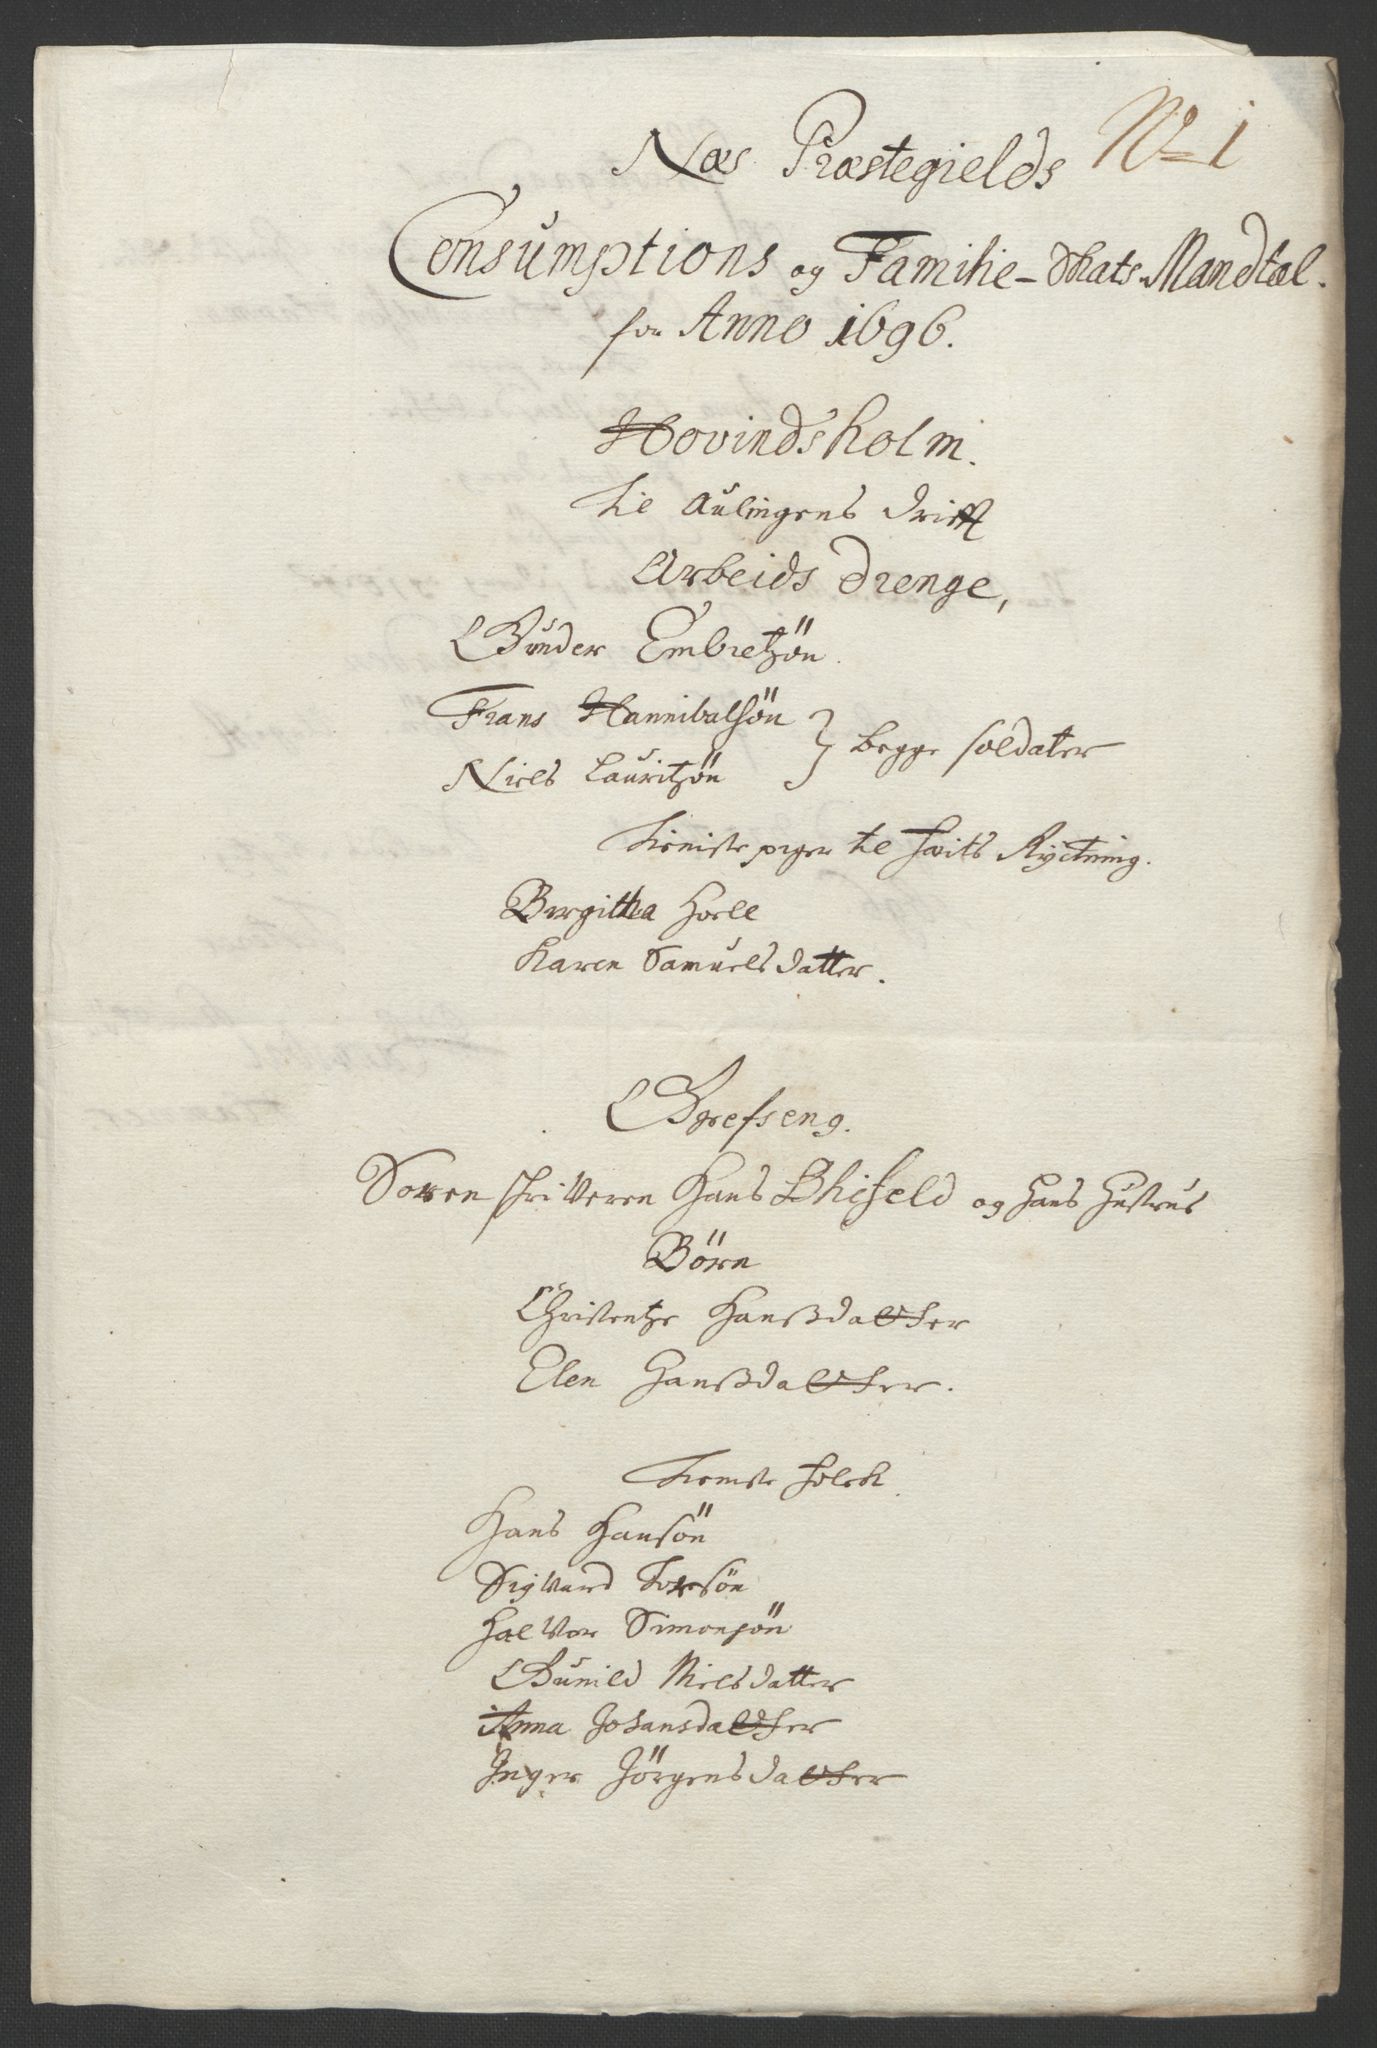 No 1
Næs Præstegields
Consumptions og Familie-Skats Mandtal.
for Anno 1696.
Hovindsholm.
til Aulingens drifft
Arbeids drenge,
Gunder Embretzön
Frans Hannibalsön } begge soldater
Niels Lauritzön
tieniste piger til Røgtning.
Birgitha
Karen Samuels datter.
Grefseng.
Soren skriveren Hans og hans hustrue
Börn
Christentze Hanßdatter
Elen Hanßdatter.
Tieniste folck
Hans Hansön
Sigvard Torsön
Halvor Simonsön
Gunild Nielsdatter
Anna Johansdatter
Inger Jörgensdatter